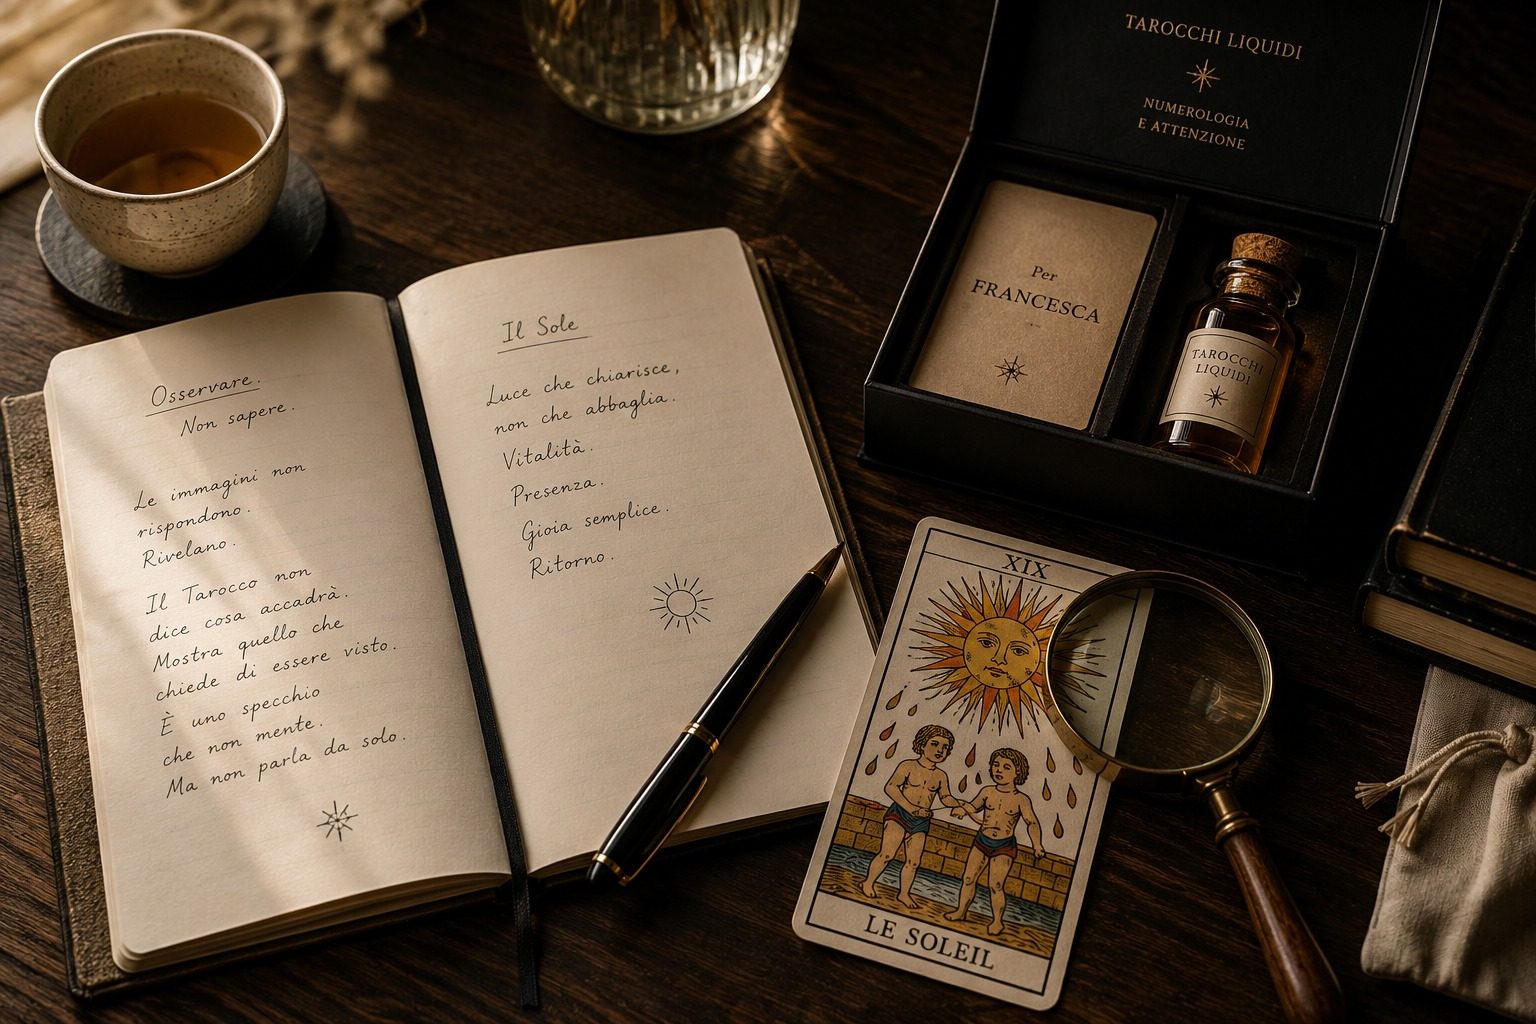 Osservare.
Non sapere.
Le immagini non
rispondono.
Rivelano.
Il Tarocco non
dice cosa accadrà.
Mostra quello che
chiede di essere visto.
È uno specchio
che non mente.
Ma non parla da solo.
Il Sole
Luce che chiarisce,
non che abbaglia.
Vitalità.
Presenza.
Gioia semplice.
Ritorno.
TAROCCHI LIQUIDI
NUMEROLOGIA
E ATTENZIONE
Per
FRANCESCA
TAROCCHI
LIQUIDI
XIX
LE SOLEIL